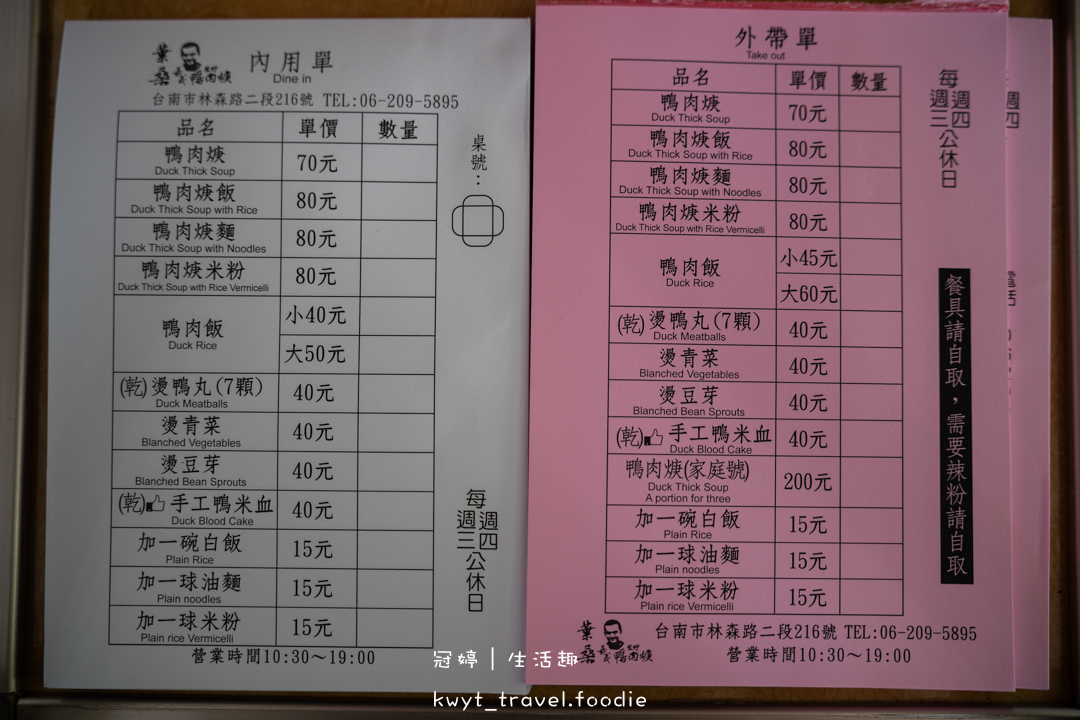 葉
桑
鴨肉焿
內用單
Dine in
台南市林森路二段216號 TEL:06-209-5895
品名 單價 數量
鴨肉焿 70元
Duck Thick Soup
鴨肉焿飯 80元
Duck Thick Soup with Rice
鴨肉焿麵 80元
Duck Thick Soup with Noodles
鴨肉焿米粉 80元
Duck Thick Soup with Rice Vermicelli
鴨肉飯 小40元
Duck Rice
大50元
(乾)燙鴨丸(7顆) 40元
Duck Meatballs
燙青菜 40元
Blanched Vegetables
燙豆芽 40元
Blanched Bean Sprouts
(乾)手工鴨米血 40元
Duck Blood Cake
加一碗白飯 15元
Plain Rice
加一球油麵 15元
Plain noodles
加一球米粉 15元
Plain rice Vermicelli
營業時間10:30～19:00
桌號：
每週三週四公休日
外帶單
Take out
品名 單價 數量
鴨肉焿 70元
Duck Thick Soup
鴨肉焿飯 80元
Duck Thick Soup with Rice
鴨肉焿麵 80元
Duck Thick Soup with Noodles
鴨肉焿米粉 80元
Duck Thick Soup with Rice Vermicelli
鴨肉飯 小45元
Duck Rice
大60元
(乾)燙鴨丸(7顆) 40元
Duck Meatballs
燙青菜 40元
Blanched Vegetables
燙豆芽 40元
Blanched Bean Sprouts
(乾)手工鴨米血 40元
Duck Blood Cake
鴨肉焿(家庭號) 200元
Duck Thick Soup
A portion for three
加一碗白飯 15元
Plain Rice
加一球油麵 15元
Plain noodles
加一球米粉 15元
Plain rice Vermicelli
葉
桑
鴨肉焿
台南市林森路二段216號 TEL:06-209-5895
營業時間10:30～19:00
每週三週四公休日
餐具請自取，需要辣粉請自取
週四
電話
冠婷｜生活趣
kwyt_travel.foodie